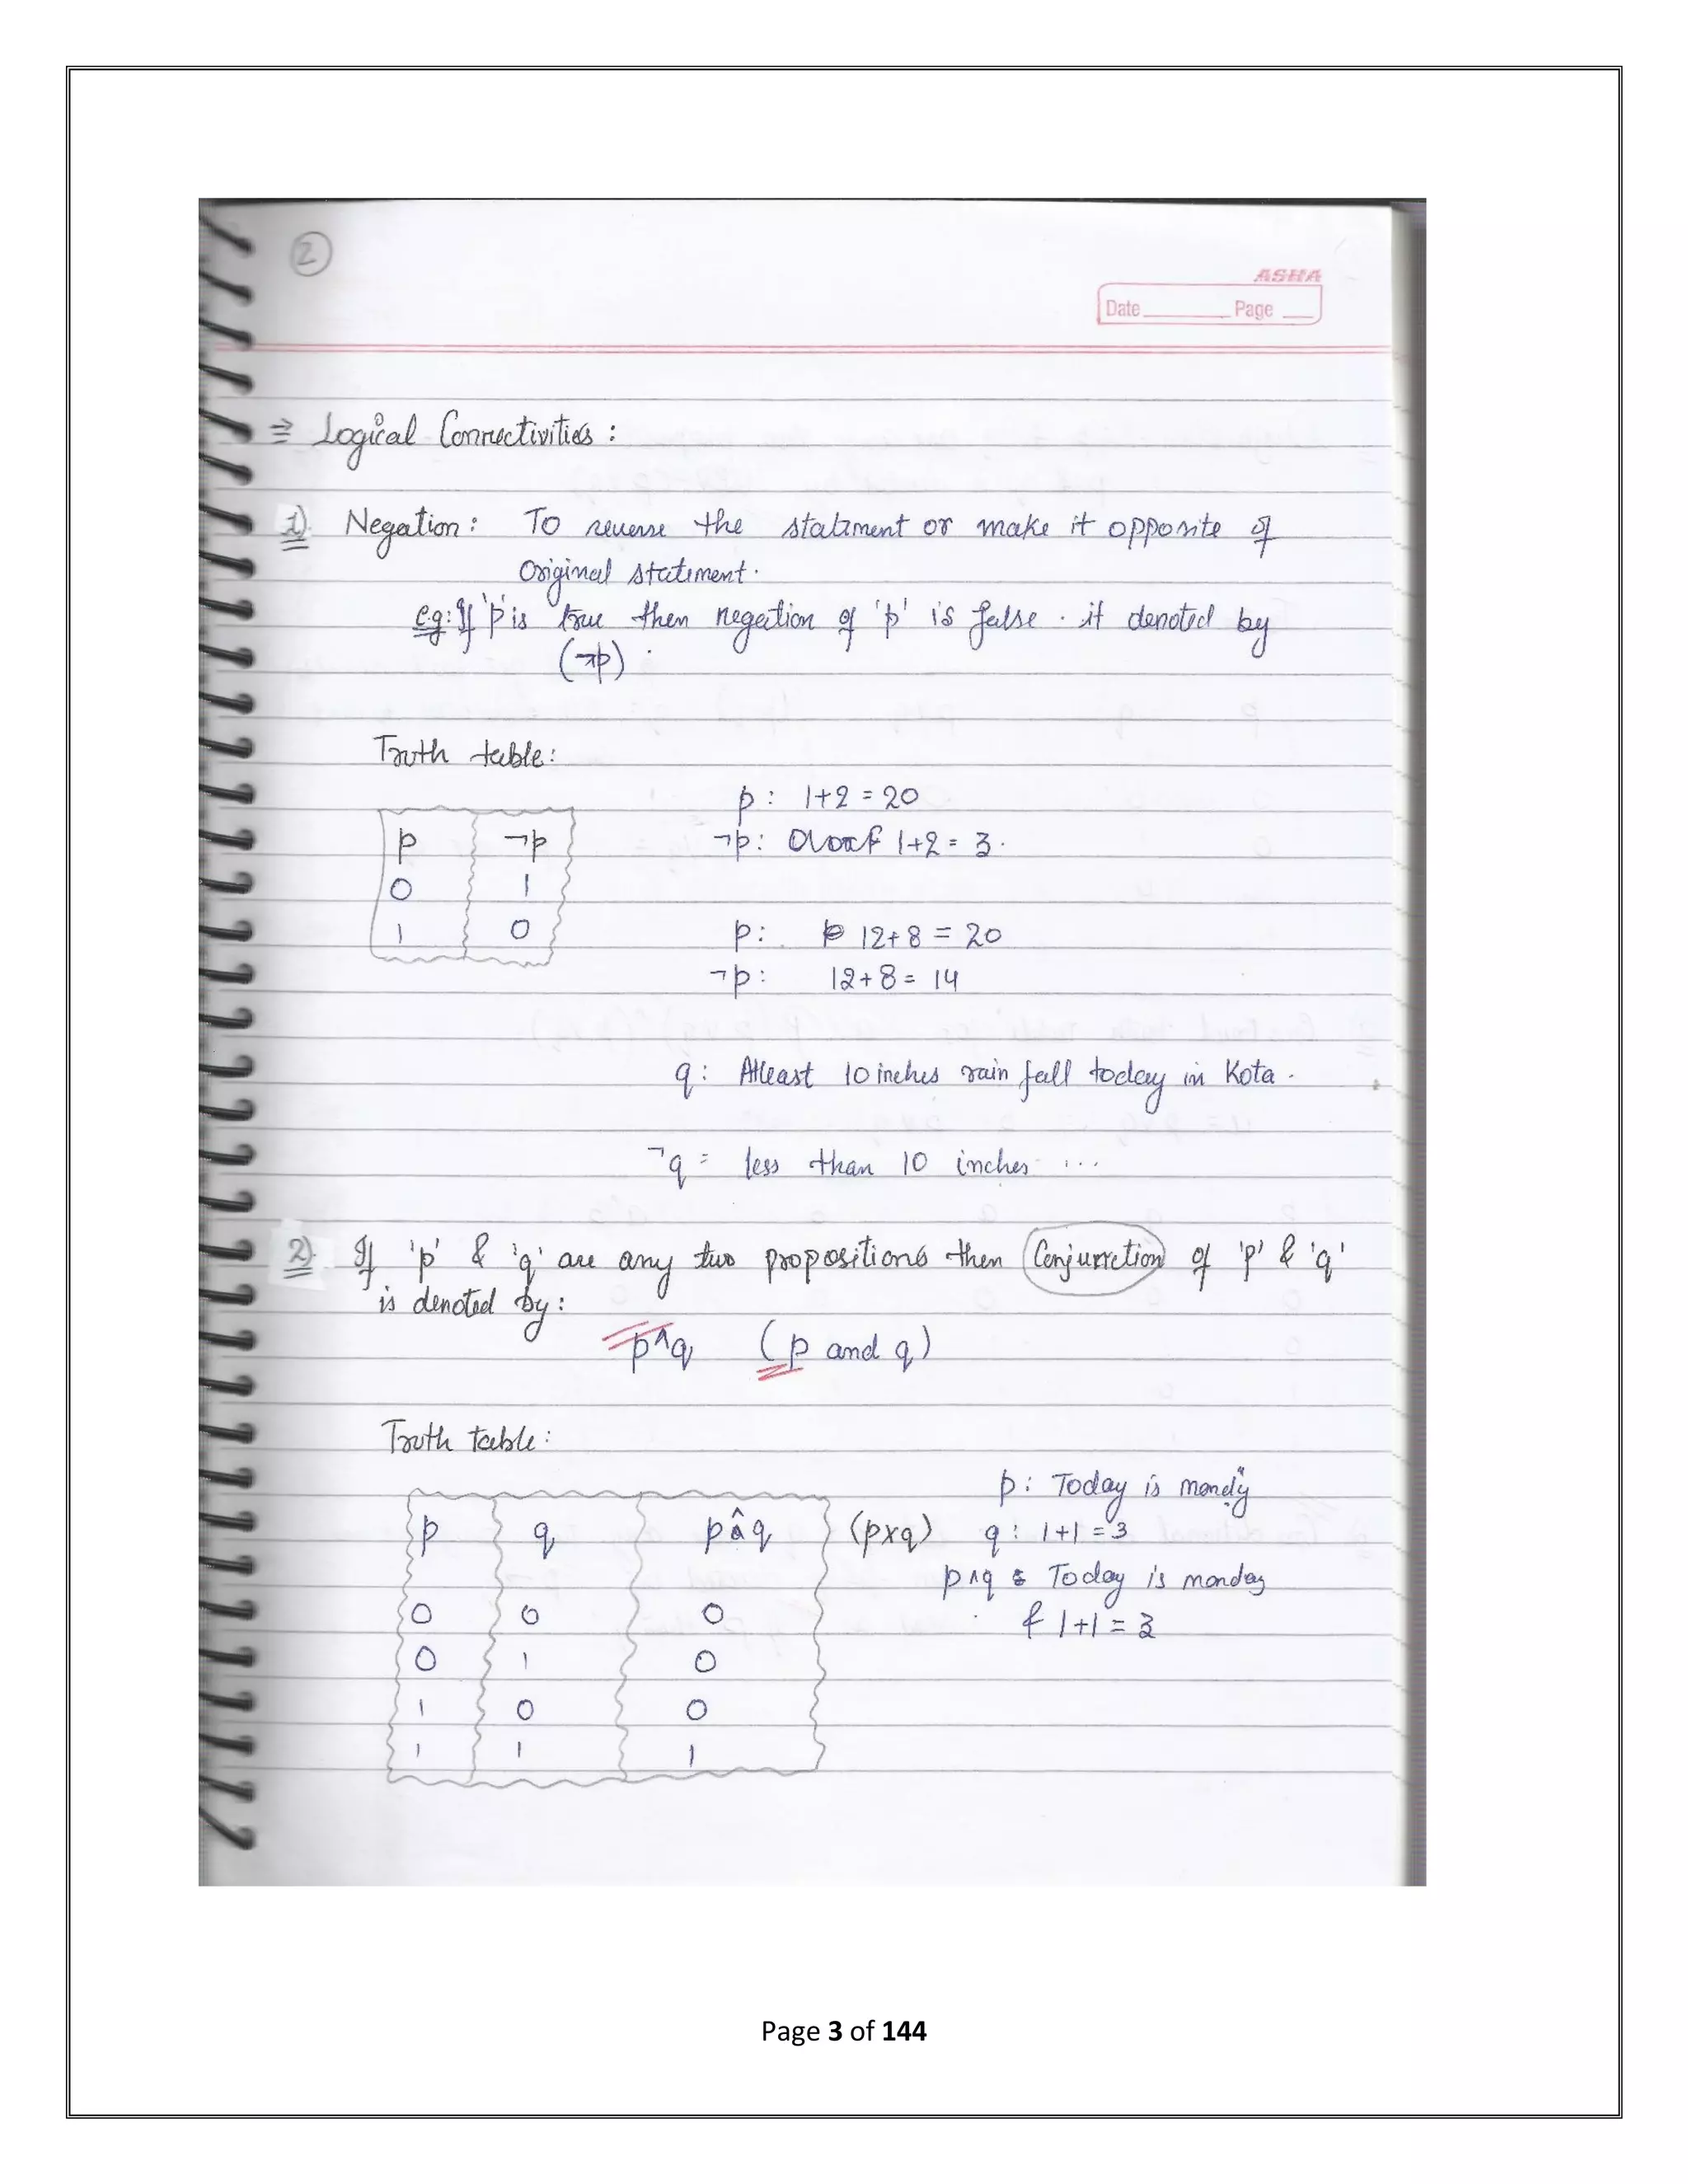 2
ASHA
Date Page
⇒ Logical Connectivities :
1) Negation : To reverse the statement or make it opposite of
Original statement.
e.g: If 'p' is true then negation of 'p' is false . it denoted by
(¬p) .
Truth table :
p : 1+2 = 20
p ¬p
¬p : 1+2 = 3 .
0 1
1 0
p : 12+8 = 20
¬p : 12+8 = 14
q : Atleast 10 inches rain fall today in Kota .
¬q = less than 10 inches ...
2) If 'p' & 'q' are any two propositions then Conjunction of 'p' & 'q'
is denoted by :
p^q (p and q)
Truth table :
p : Today is mondy
p q p^q (p×q) q : 1+1 = 3
p^q : Today is monday
0 0 0 & 1+1 = 3
0 1 0
1 0 0
1 1 1
Page 3 of 144